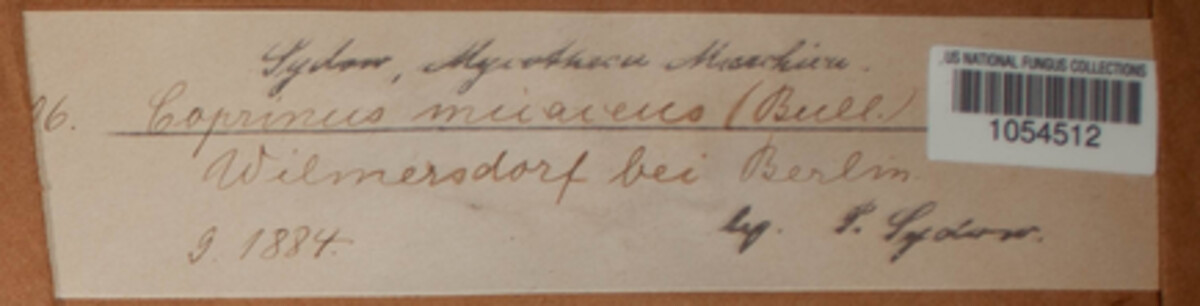 Sydow, Mycotheca Marchica.
US NATIONAL FUNGUS COLLECTIONS
1054512
96. Coprinus micaceus (Bull.)
Wilmersdorf bei Berlin
9. 1884.
leg. P. Sydow.